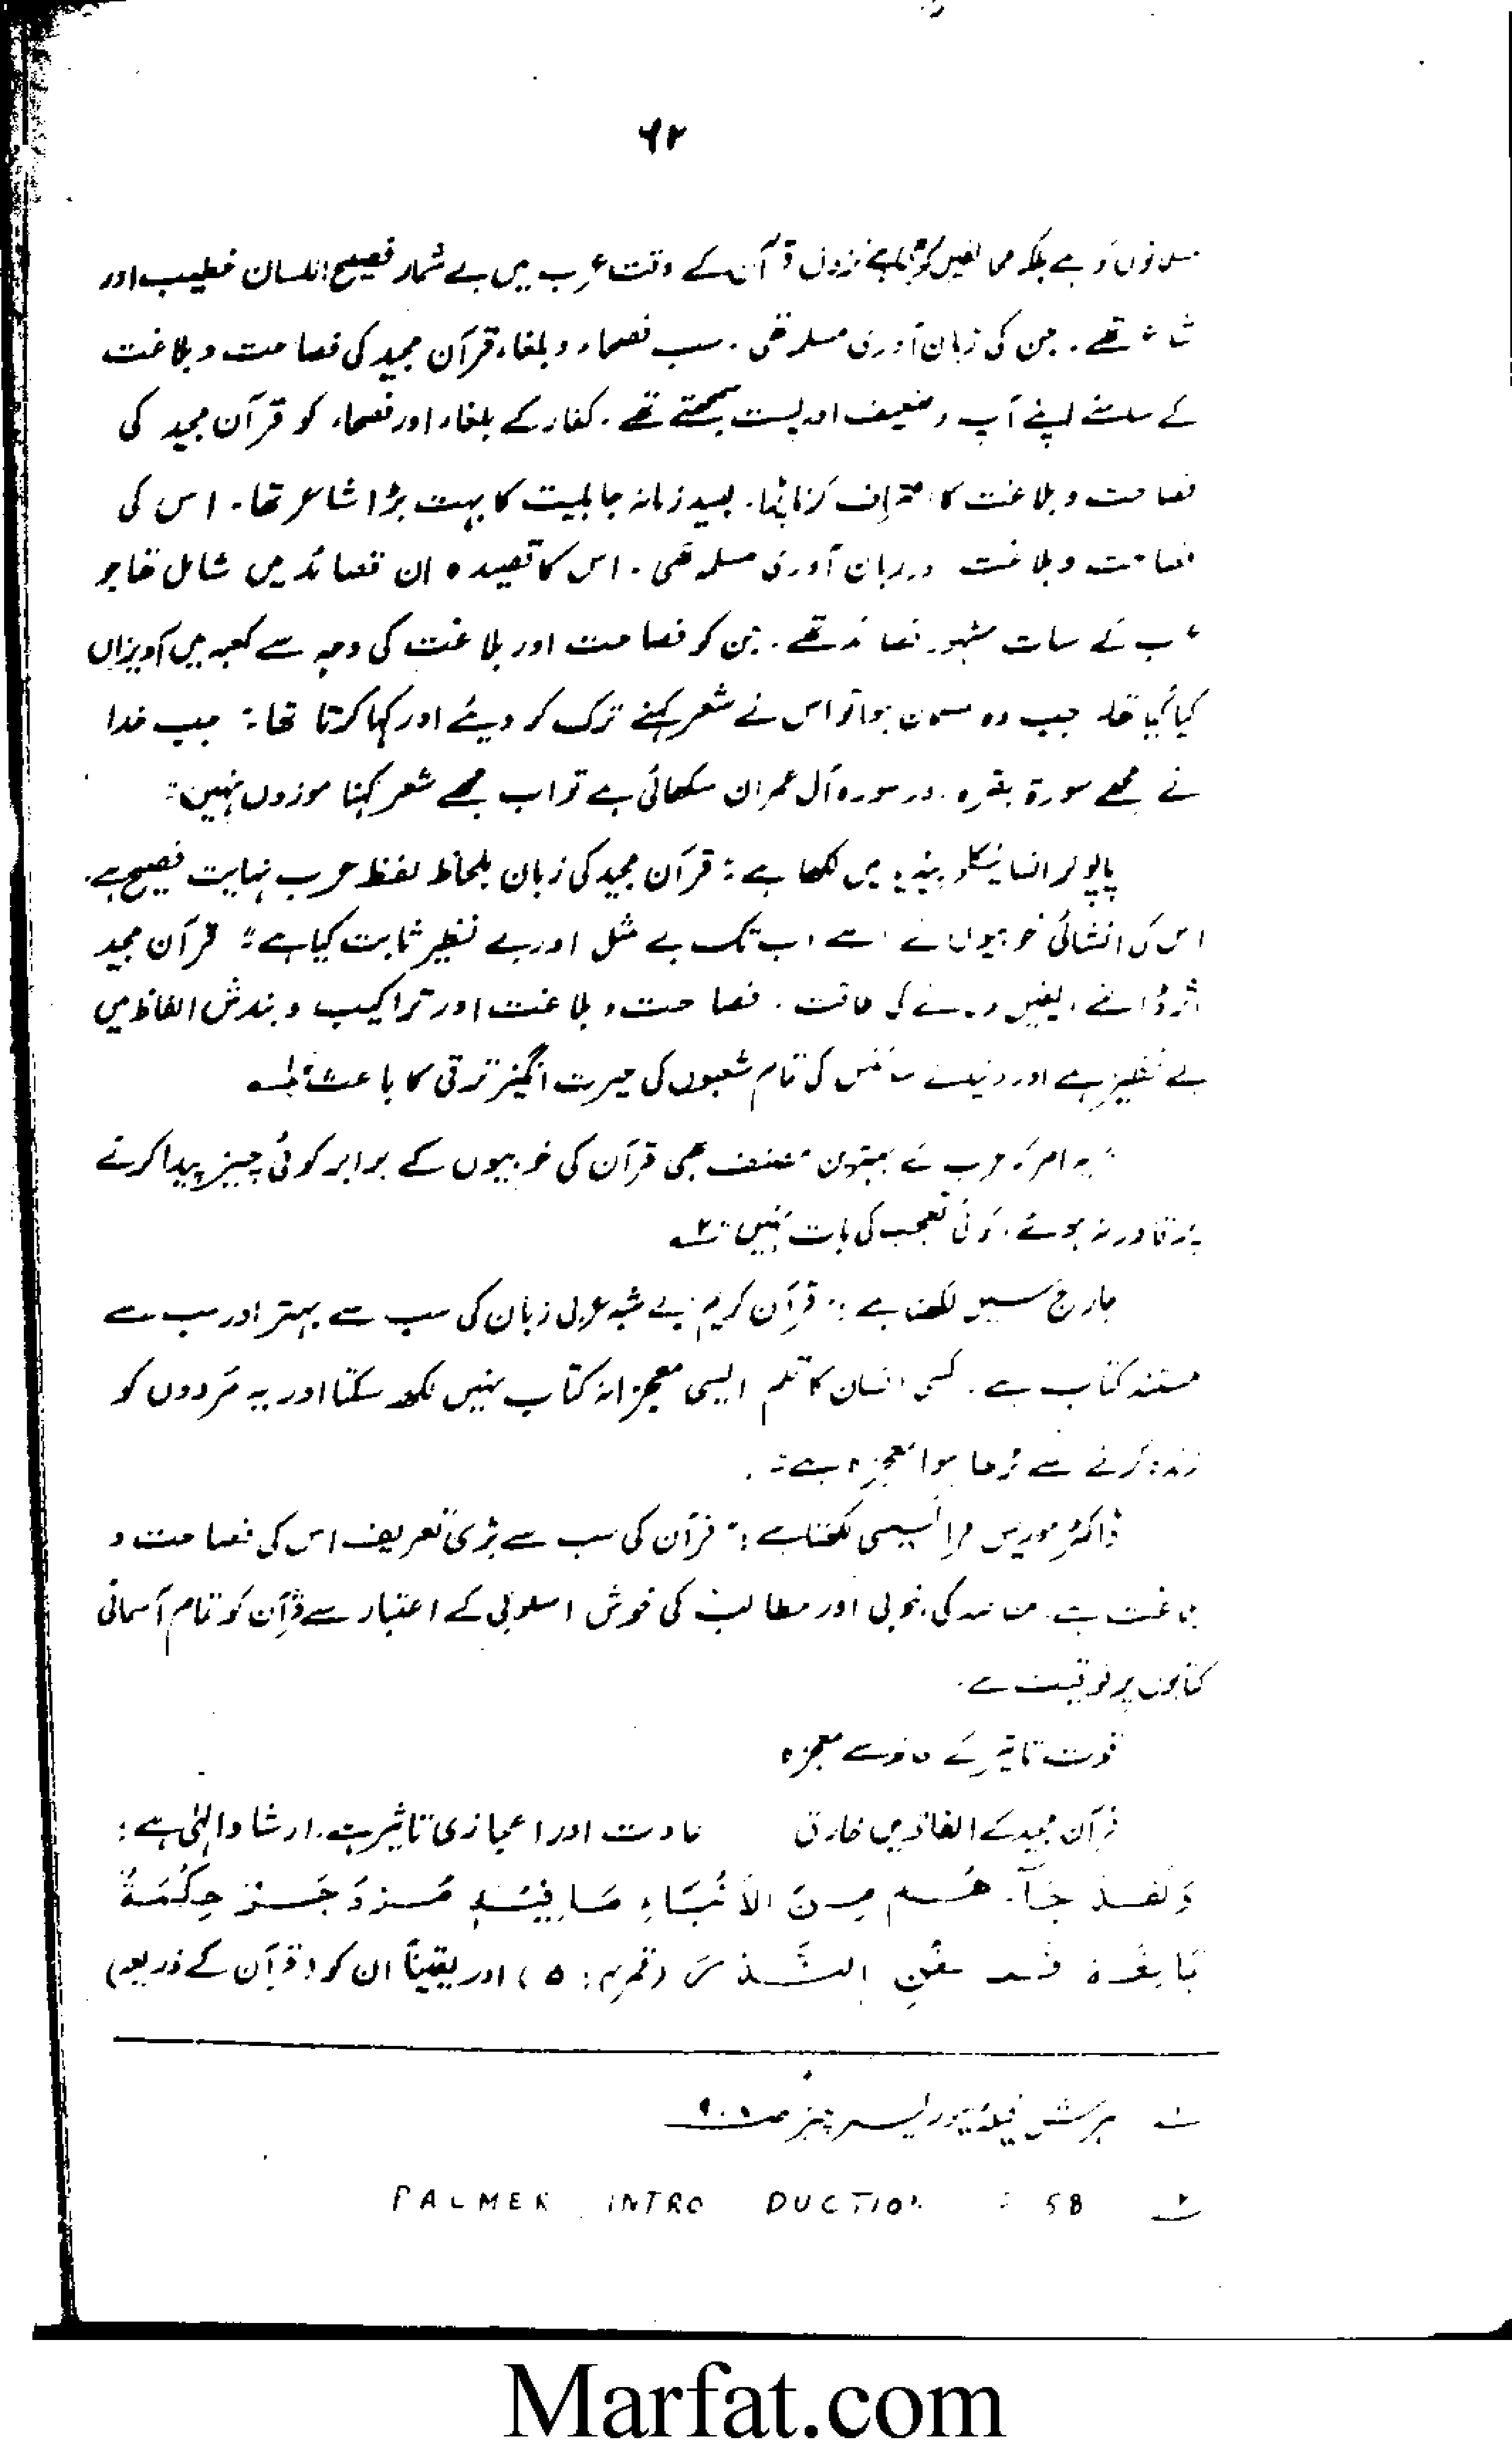 ۶۲
مسلمانوں کو ہے بلکہ مخالفین کو نزول قرآن کے وقت عرب میں بے شمار فصیح اللسان خطیب اور
تھے۔ جن کی زبان آوری مسلمہ تھی۔ سب فصحاء و بلغاء قرآن مجید کی فصاحت و بلاغت
کے سامنے اپنے آپ کو ضعیف اور پست سمجھتے تھے۔ کفار کے بلغاء اور فصحاء کو قرآن مجید کی
فصاحت و بلاغت کا اعتراف کرنا پڑا۔ لبید زمانہ جاہلیت کا بہت بڑا شاعر تھا۔ اس کی
فصاحت و بلاغت اور زبان آوری مسلمہ تھی۔ اس کا قصیدہ ان قصائد میں شامل تھا جو
عرب کے سات مشہور قصائد تھے۔ جن کو فصاحت اور بلاغت کی وجہ سے کعبہ میں آویزاں
کیا گیا تھا۔ جب وہ مسلمان ہوا تو اس نے شعر کہنے ترک کر دیئے اور کہا کرتا تھا: جب خدا
نے مجھے سورۃ بقرہ اور سورہ آل عمران سکھائی ہے تو اب مجھے شعر کہنا موزوں نہیں"
پاپولر انسائیکلوپیڈیا میں لکھا ہے: قرآن مجید کی زبان بلحاظ لفظ عرب نہایت فصیح ہے۔
اس کی انشائی خوبیوں نے اسے اب تک بے مثل اور بے نظیر ثابت کیا ہے" قرآن مجید
اثر ڈالنے، یقین دلانے کی طاقت، فصاحت و بلاغت اور تراکیب و بندش الفاظ میں
بے نظیر ہے اور دنیائے سائنس کی تمام شعبوں کی حیرت انگیز ترقی کا باعث ہے" ۱؎
"یہ امر کہ عرب کے بہترین مصنف بھی قرآن کی خوبیوں کے برابر کوئی چیز پیدا کرنے
پر قادر نہ ہوئے، کوئی تعجب کی بات نہیں" ۲؎
جارج سیل لکھتا ہے: "قرآن کریم بے شبہ عربی زبان کی سب سے بہتر اور سب سے
مستند کتاب ہے۔ کسی انسان کا قلم ایسی معجزانہ کتاب نہیں لکھ سکتا اور یہ مُردوں کو
زندہ کرنے سے بڑھا ہوا معجزہ ہے"۔
ڈاکٹر موریس فرانسیسی لکھتا ہے: "قرآن کی سب سے بڑی تعریف اس کی فصاحت و
بلاغت ہے۔ مقاصد کی خوبی اور مطالب کی خوش اسلوبی کے اعتبار سے قرآن کو تمام آسمانی
کتابوں پر فوقیت ہے۔
قوت تاثیر کے لحاظ سے معجزہ
قرآن مجید کے الفاظ میں خارق عادت اور اعجازی تاثیر ہے۔ ارشاد الٰہی ہے:
وَلَقَدْ جَآءَهُمْ مِنَ الْأَنْبَاءِ مَا فِيْهِ مُزْدَجَرٌ حِكْمَةٌ
بَالِغَةٌ فَمَا تُغْنِ النُّذُرُ (قمر: ۵) اور یقیناً ان کو (قرآن کے ذریعہ)
۱؎ ہرش فیلڈ نیو ریسرچز صـ
۲؎ PALMER INTRO DUCTION : 58
Marfat.com